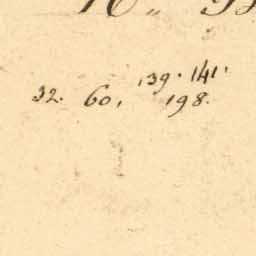 139. 141.
32. 60, 198.